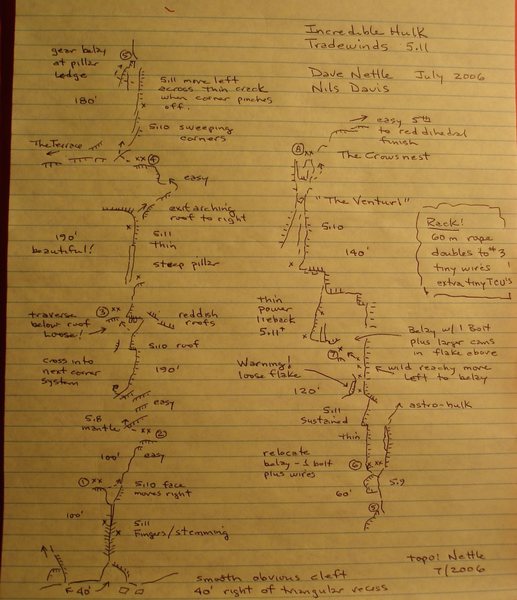 Incredible Hulk
Tradewinds 5.11
Dave Nettle July 2006
Nils Davis
gear belay
at pillar
ledge
5
180'
5.11 move left
across thin crack
when corner pinches
off.
5.10 sweeping
corners
The Terrace
xx 4
easy
exit arching
roof to right
190'
beautiful!
5.11
thin
steep pillar
3 xx
traverse
below roof
Loose!
reddish
roofs
5.10 roof
cross into
next corner
system
190'
easy
5.8
mantle
xx 2
100'
easy
1 xx
5.10 face
moves right
100'
5.11
Fingers/stemming
40'
smooth obvious cleft
40' right of triangular recess
easy 5th
to red dihedral
finish
8 xx
The Crowsnest
"The Venturi"
5.10
140'
Rack!
60m rope
doubles to #3
tiny wires
extra tiny TCU's
thin
power
lieback
5.11+
7
Belay w/ 1 Bolt
plus larger cams
in flake above
Warning!
loose flake
wild reachy move
left to belay
120'
astro-hulk
5.11
sustained
thin
relocate
belay - 1 bolt
plus wires
6 xx
60'
5.9
5
topo: Nettle
7/2006